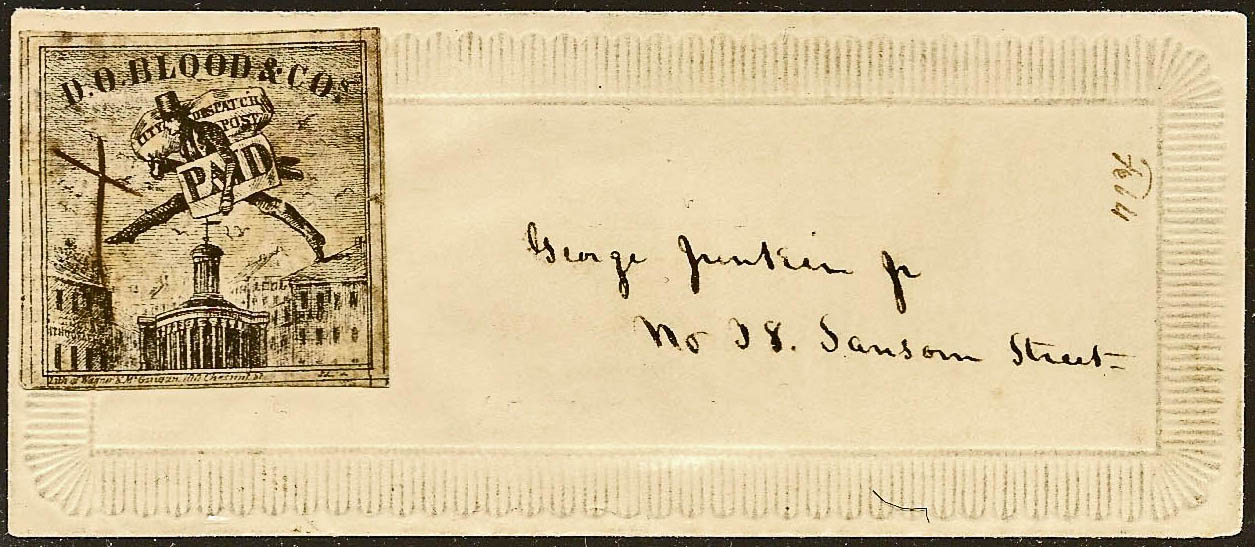 D.O.BLOOD & CO.s
CITY DESPATCH
POST
PAID
Lith of Wagner & McGuigan, 100 Chesnut St.
George Junkin Jr
No 38. Sansom Street
Feb 4